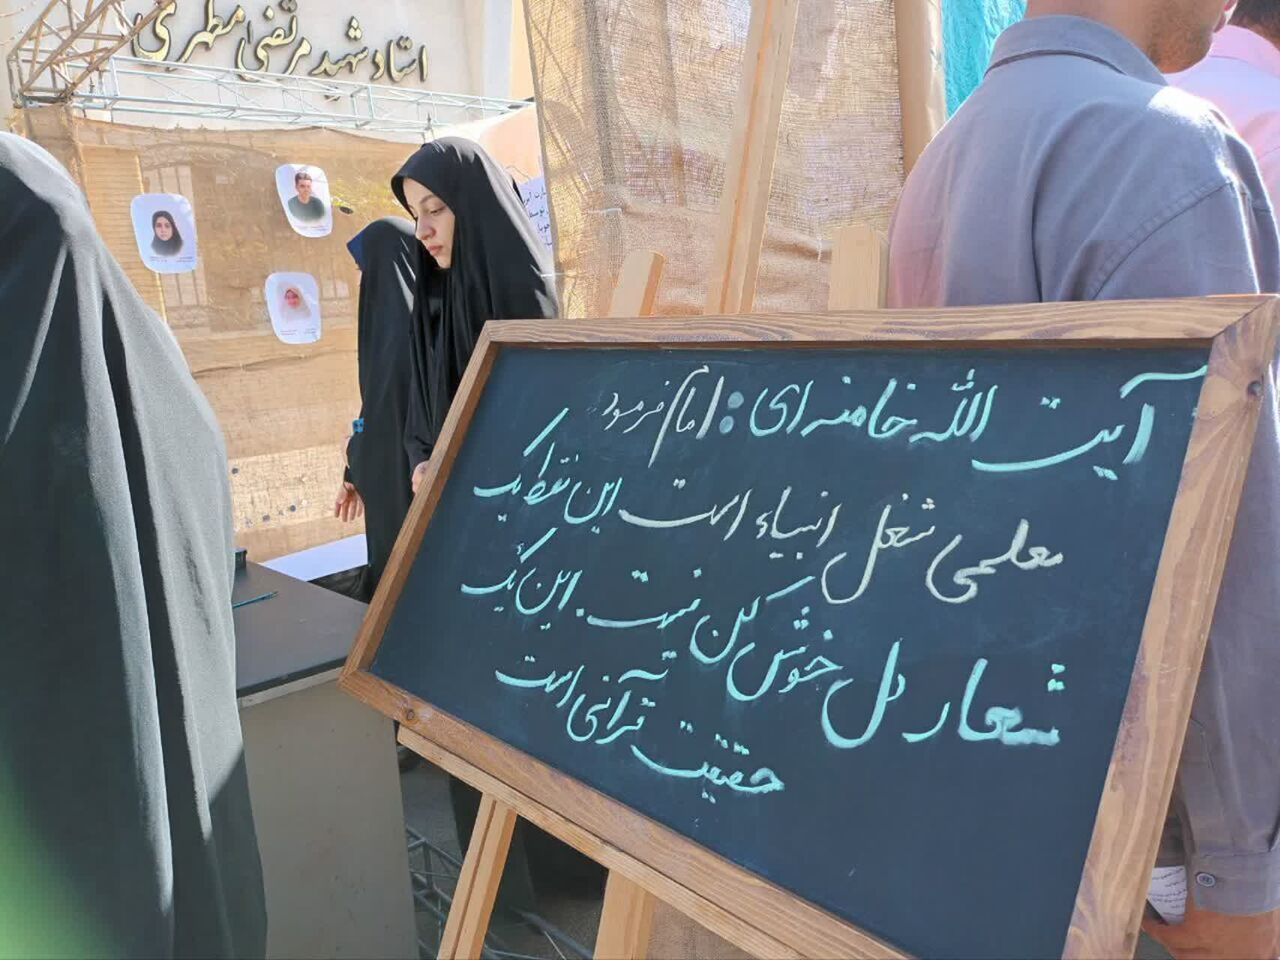 استاد شهید مرتضی مطهری
آیت الله خامنه ای : امام فرمود
معلمی شغل انبیاء است این فقط یک
شعار دل خوش کن نیست. این یک
حقیقت قرآنی است